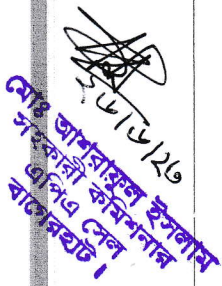 ১৮/৬/২৩
মোঃ আশরাফুল ইসলাম
সহকারী কমিশনার
এপিএ সেল
বাগেরহাট।